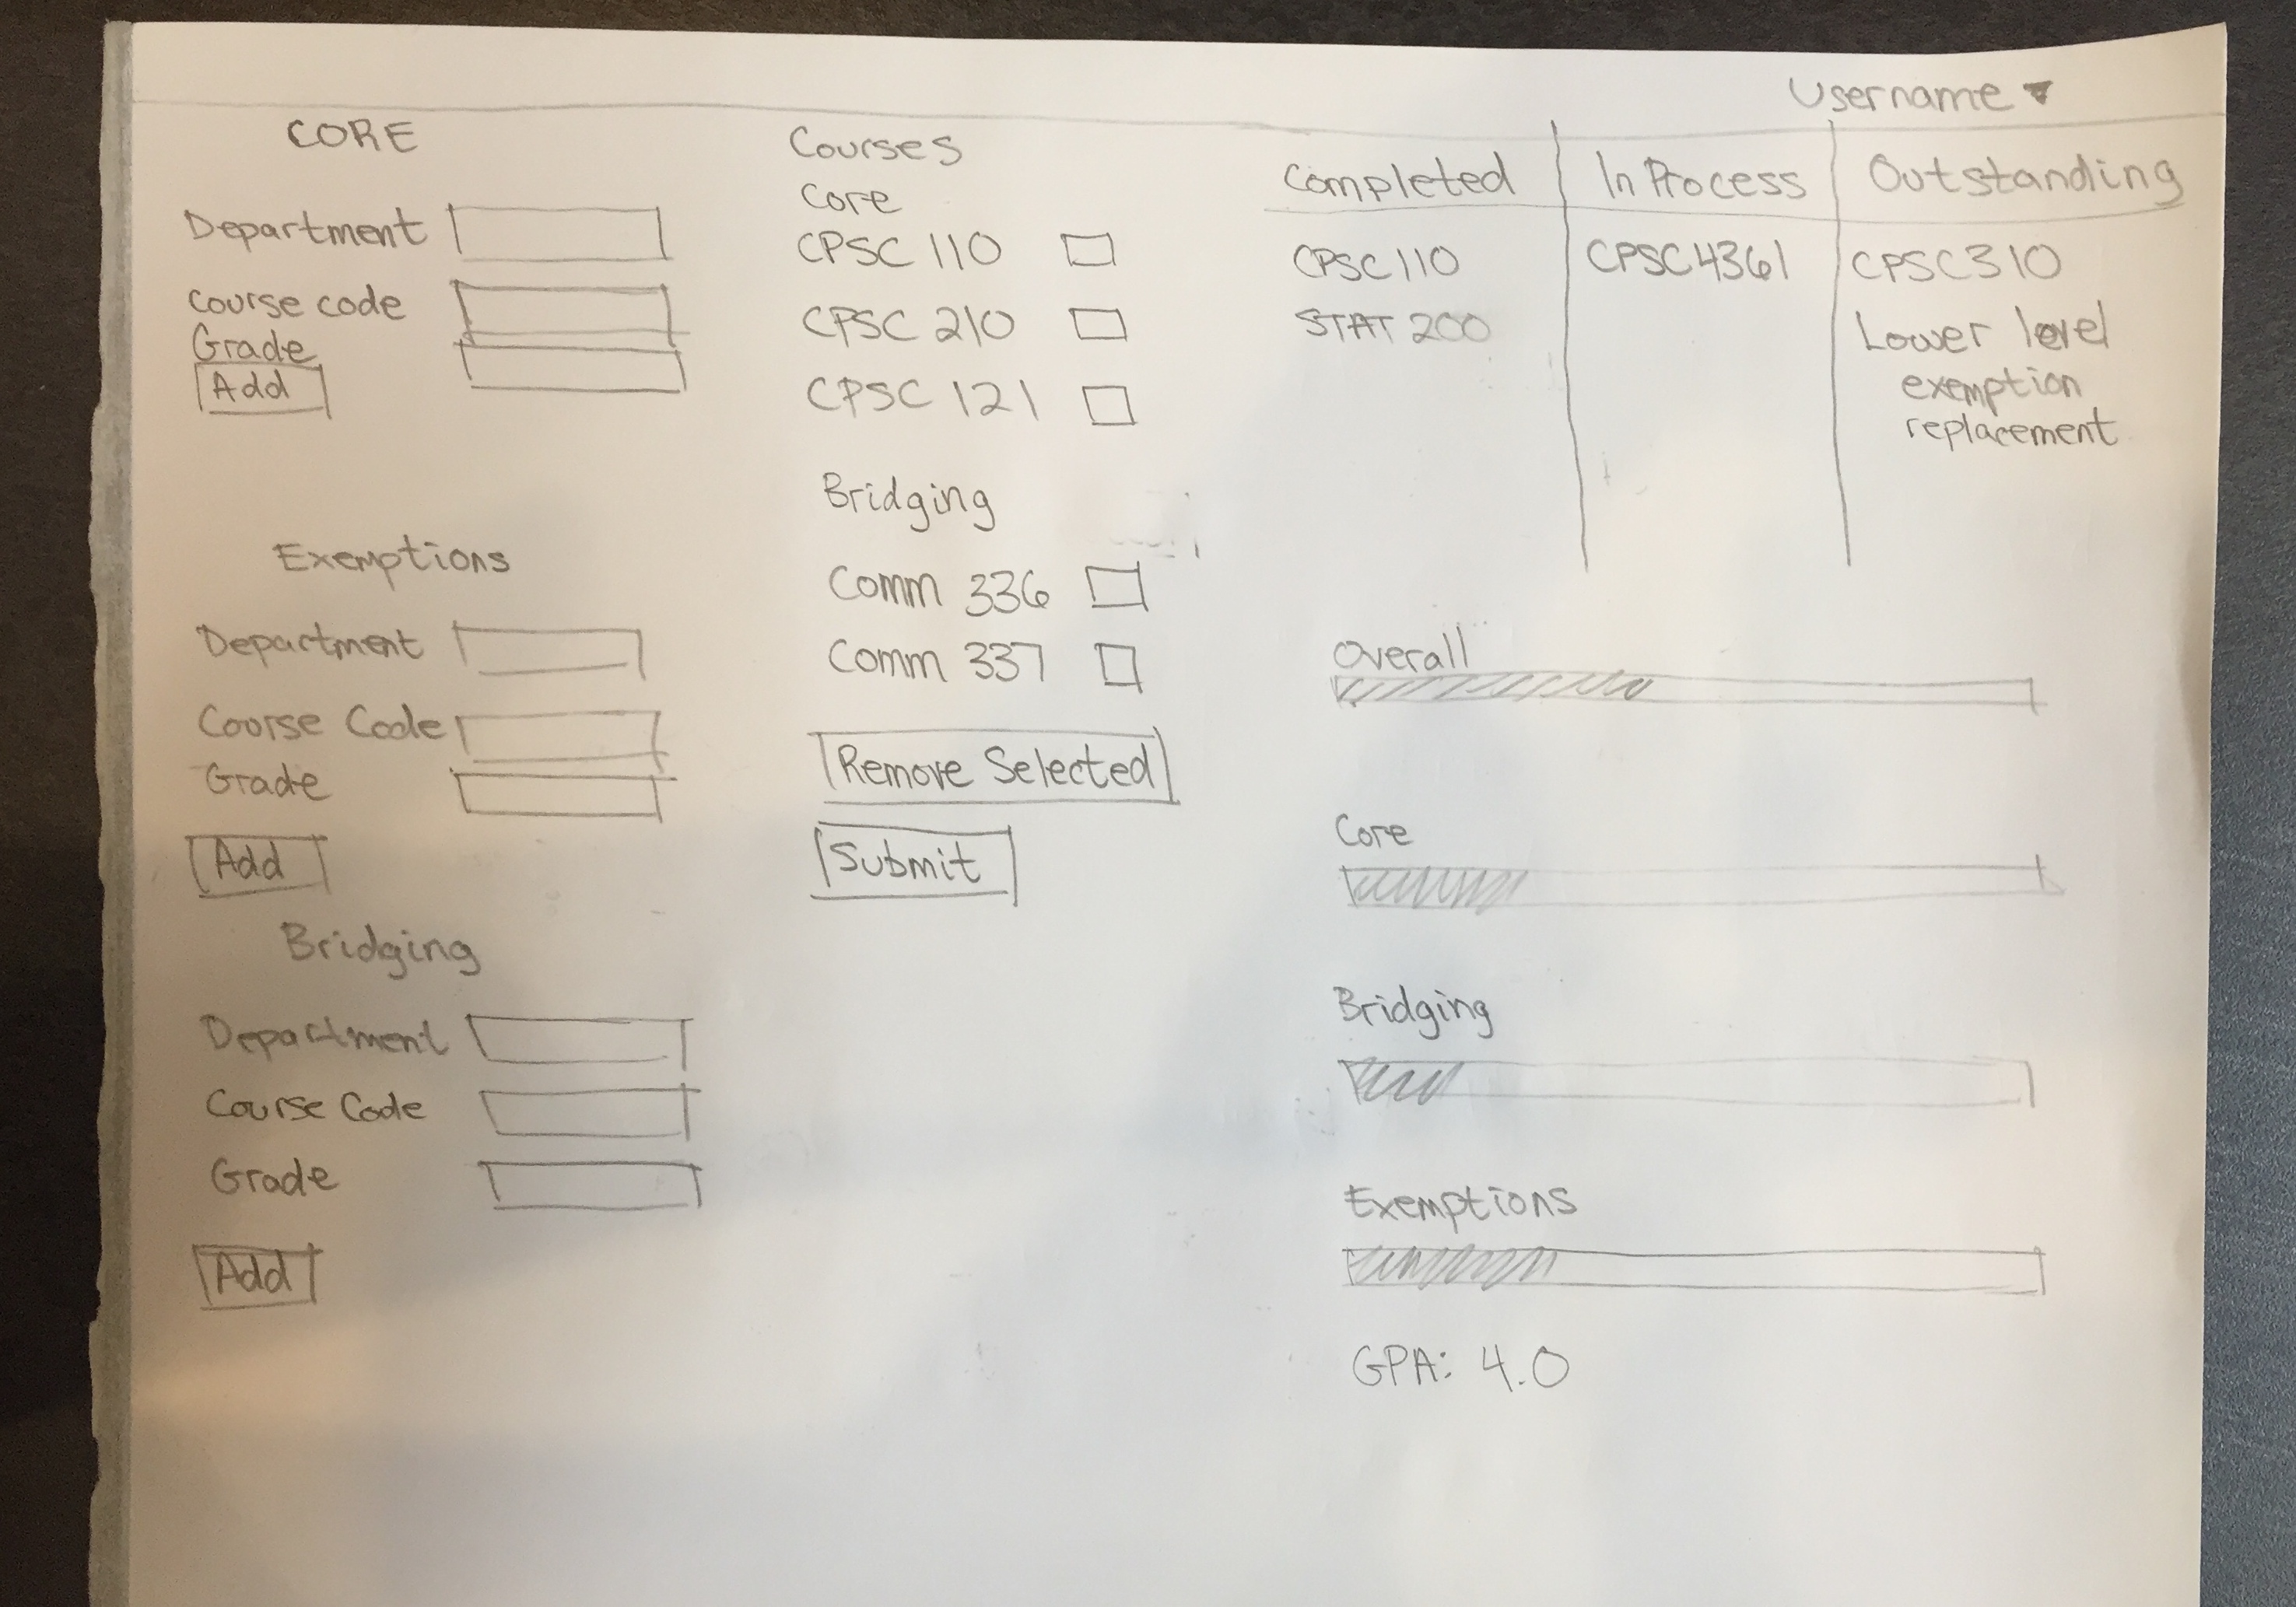 Username
CORE
Department
Course code
Grade
Add
Exemptions
Department
Course Code
Grade
Add
Bridging
Department
Course Code
Grade
Add
Courses
Core
CPSC 110
CPSC 210
CPSC 121
Bridging
Comm 336
Comm 337
Remove Selected
Submit
Completed
CPSC 110
STAT 200
In Process
CPSC 4361
Outstanding
CPSC 310
Lower level
exemption
replacement
Overall
Core
Bridging
Exemptions
GPA: 4.0